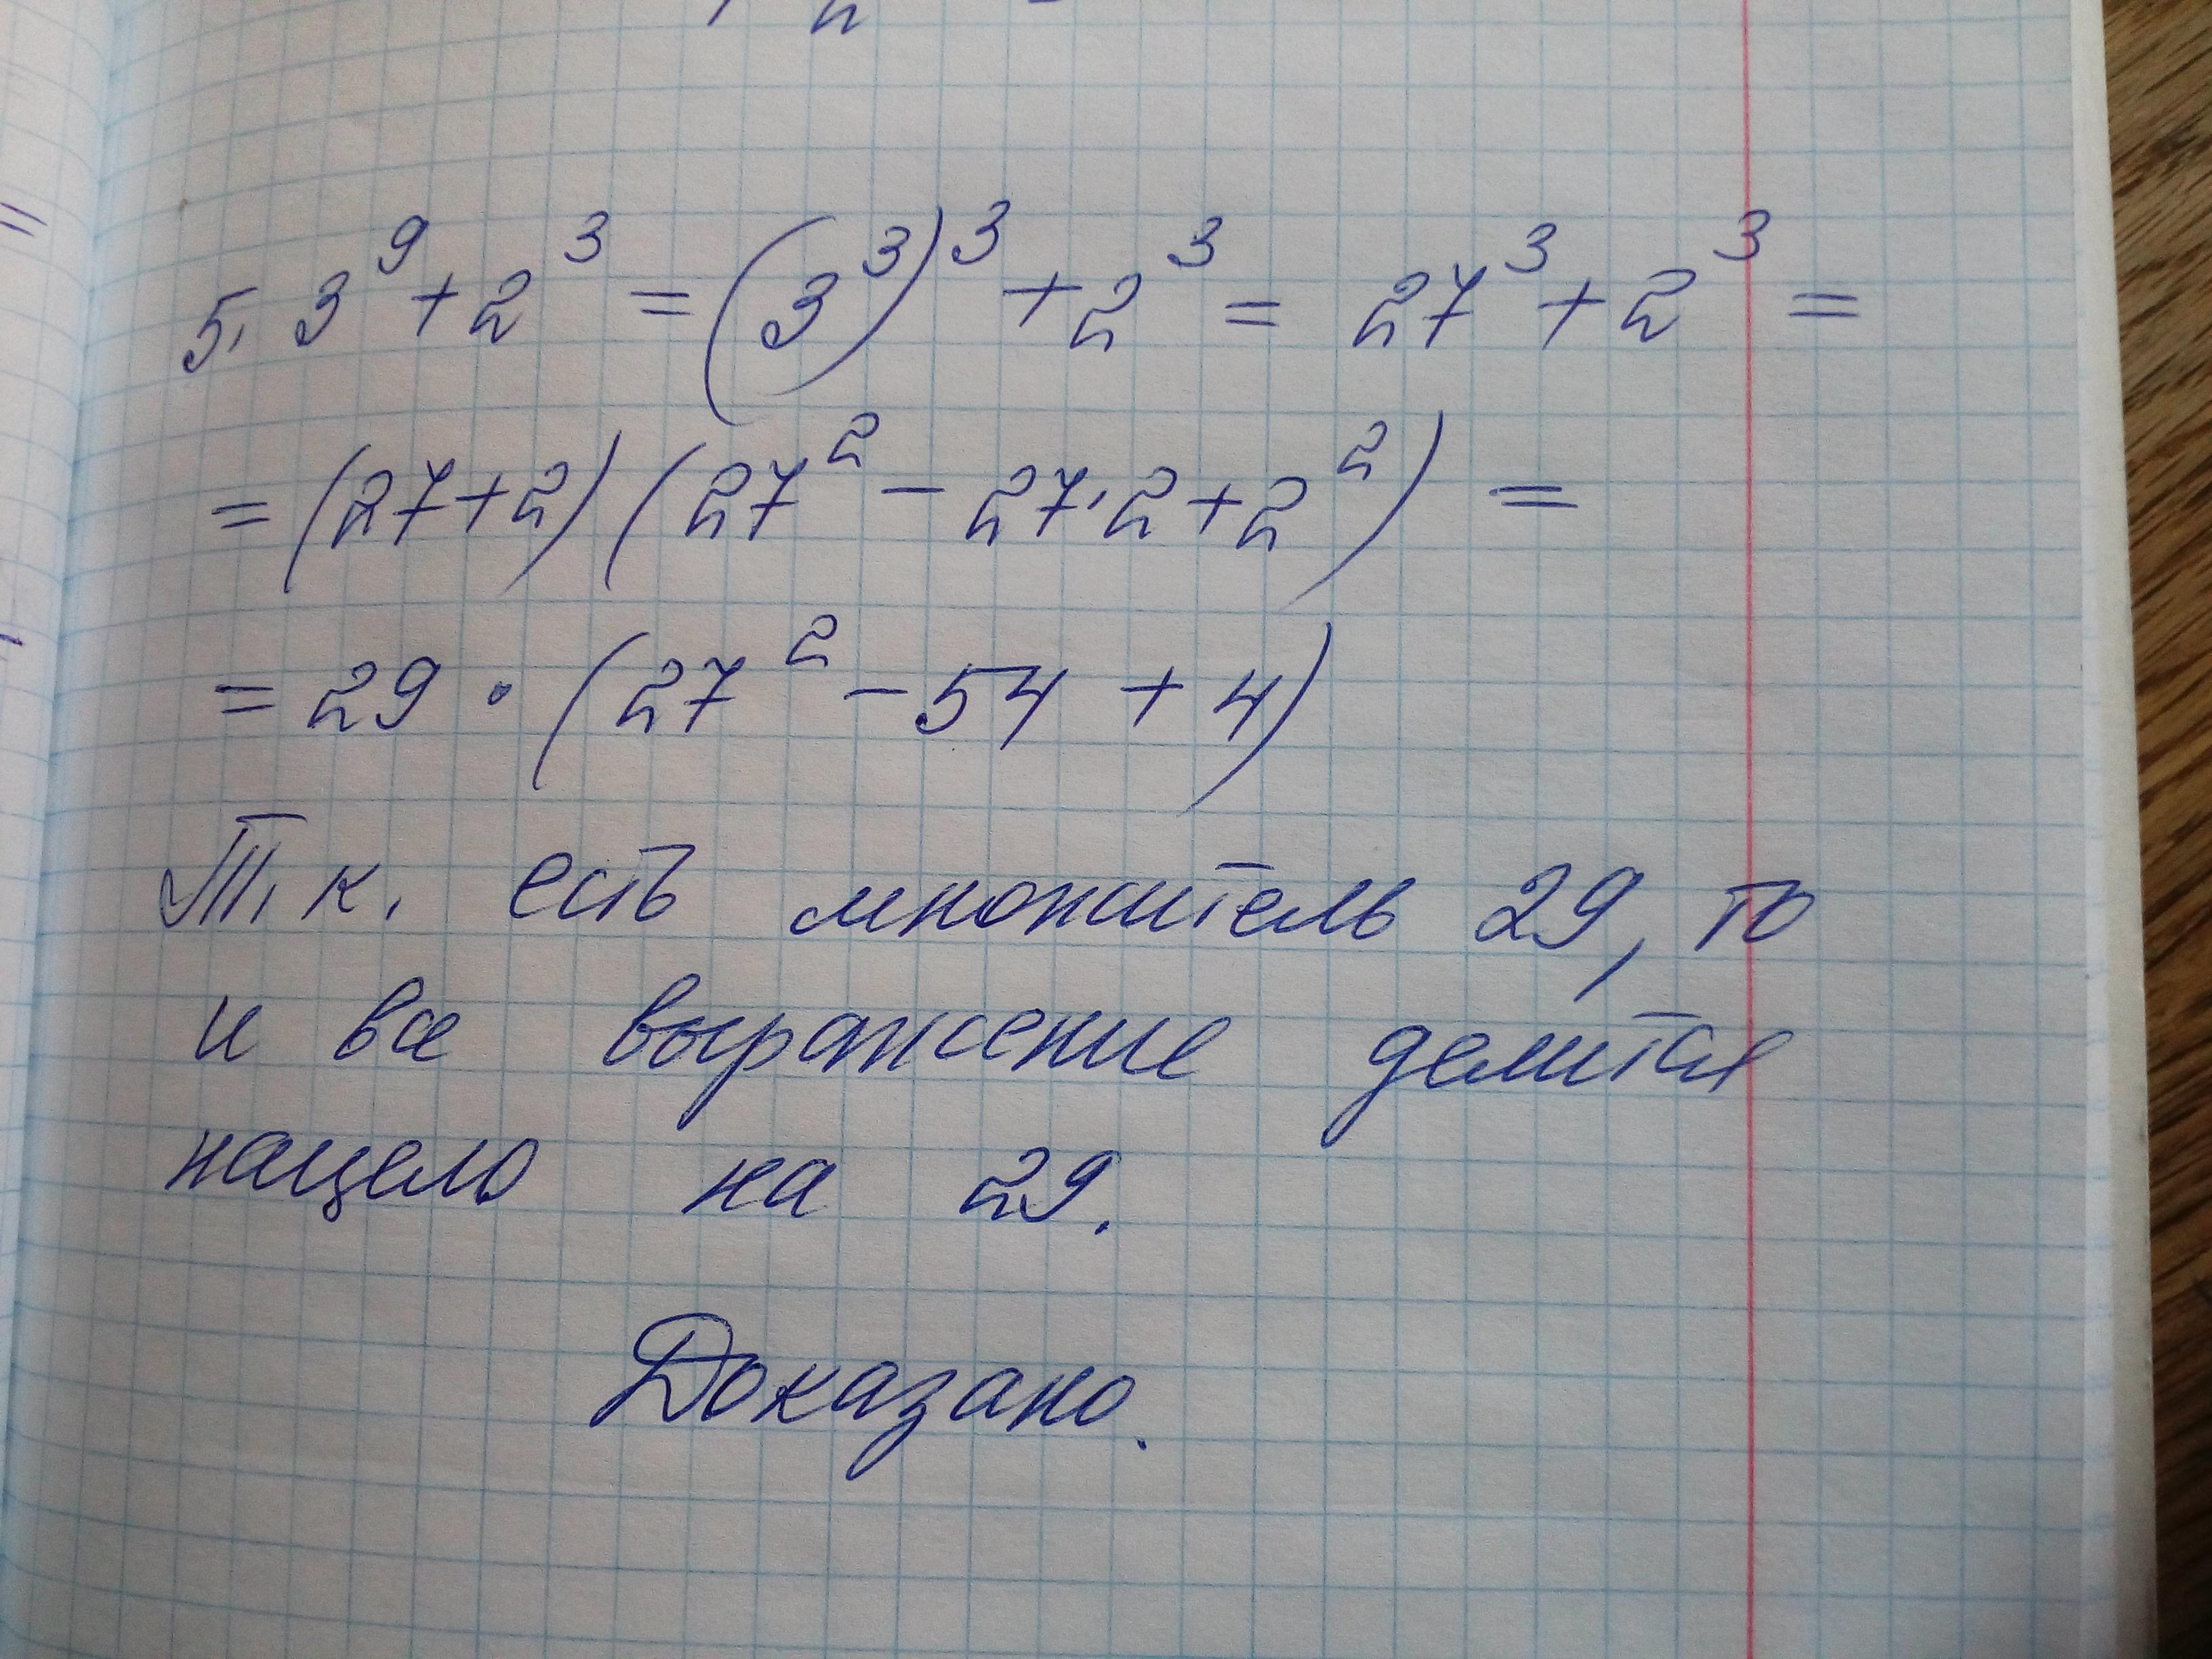 5. 3⁹ + 2³ = (3³)³ + 2³ = 27³ + 2³ =
= (27+2)(27² − 27·2 + 2²) =
= 29 · (27² − 54 + 4)
Т. к. есть множитель 29, то
и все выражение делится
нацело на 29.
Доказано.